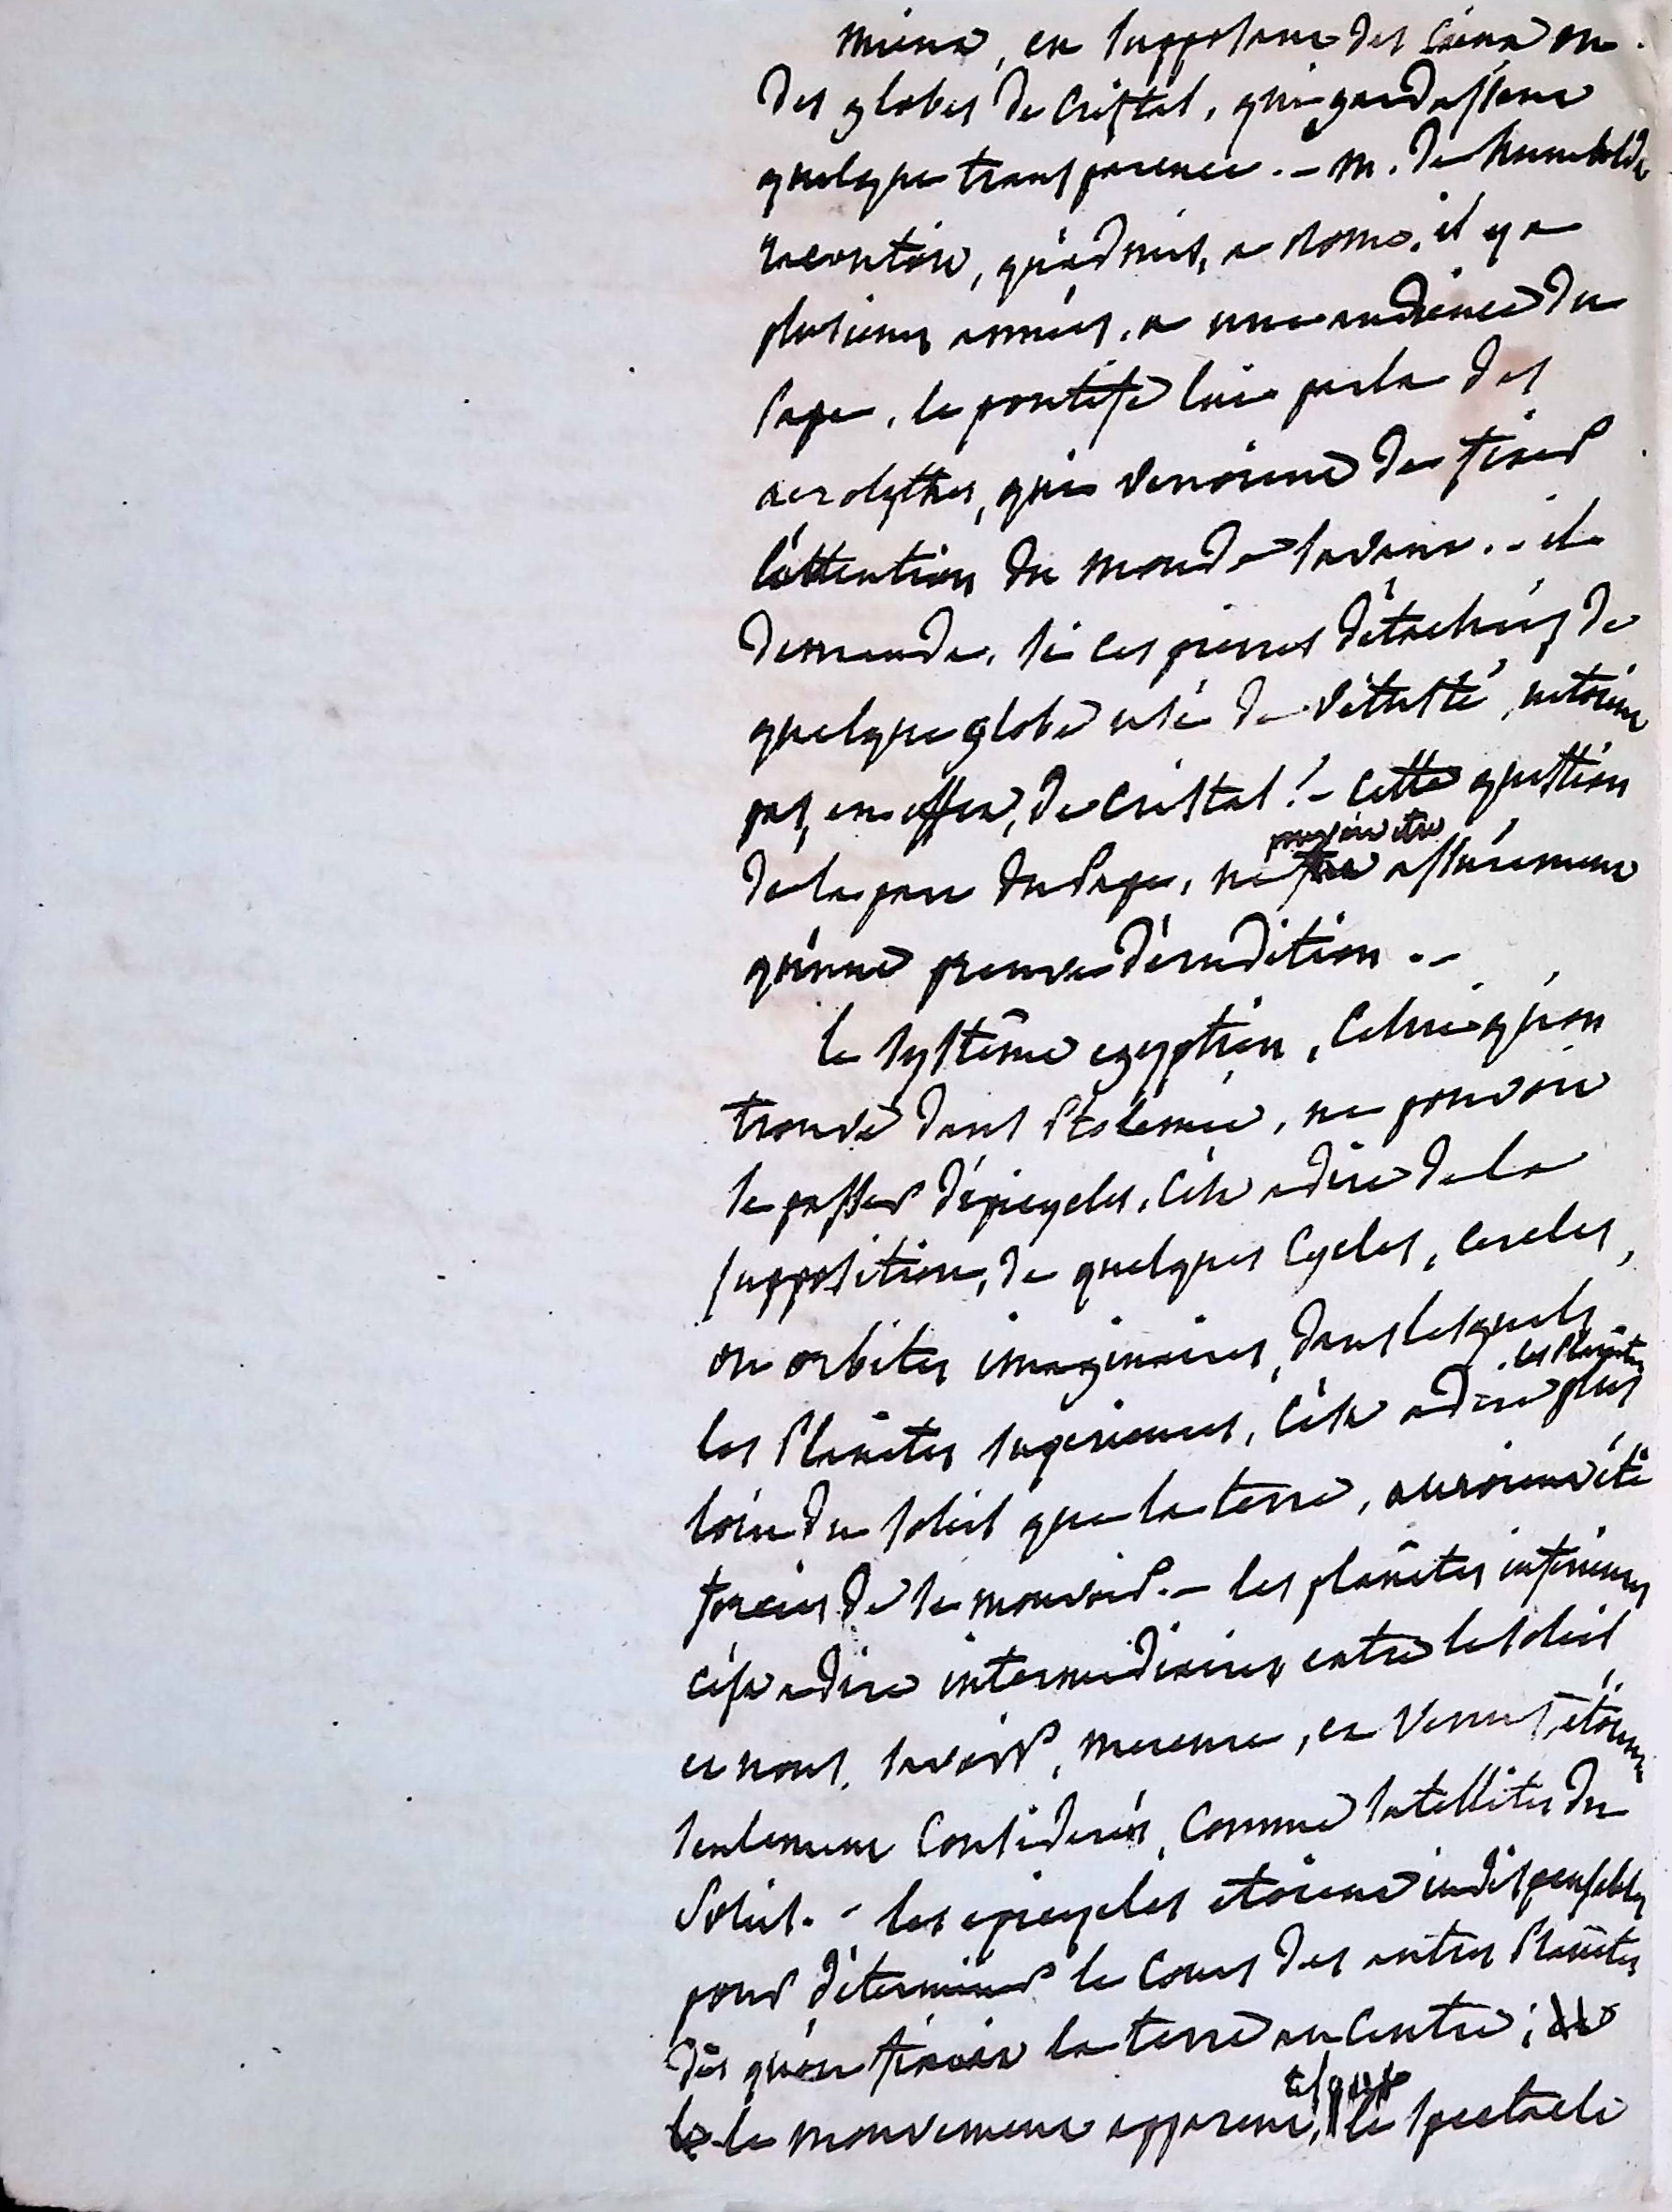 mieux, en supposant des cieux ou
des globes de cristal, qui gardassent
quelque transparence. - M. de humboldt
racontoit, qu'admis, a Rome, il y a
plusieurs années, a une audience du
Pape, le pontife lui parla des
aerolythes, qui venoient de fixer
l'attention du monde savant. - il
demanda, si ces pierres détachées de
quelque globe usé de vétusté, n'etoient
pas, en effet, de cristal! - Cette question
de la part du Pape, ne pouvoit etre assurément
qu'une preuve d'érudition. -
le systême egyptien, celui qu'on
trouve dans Ptolémée, ne pouvoit
se passer d'épicycles, c'est a dire de la
supposition, de quelques cycles, cercles,
ou orbites imaginaires, dans lesquels
les Planêtes superieures, c'est a dire les Planêtes plus
loin du soleil que la terre, auroient été
forcées de se mouvoir. - les planêtes inférieures
c'est a dire intermediaires entre le soleil
et nous, savoir, mercure, et Venus, étoient
seulement considerées, comme satellites du
Soleil. - les epicycles etoient indispensables
pour déterminer le cours des autres Planêtes
dès qu'on fixoit la terre au centre;
le mouvement apparent, le spectacle